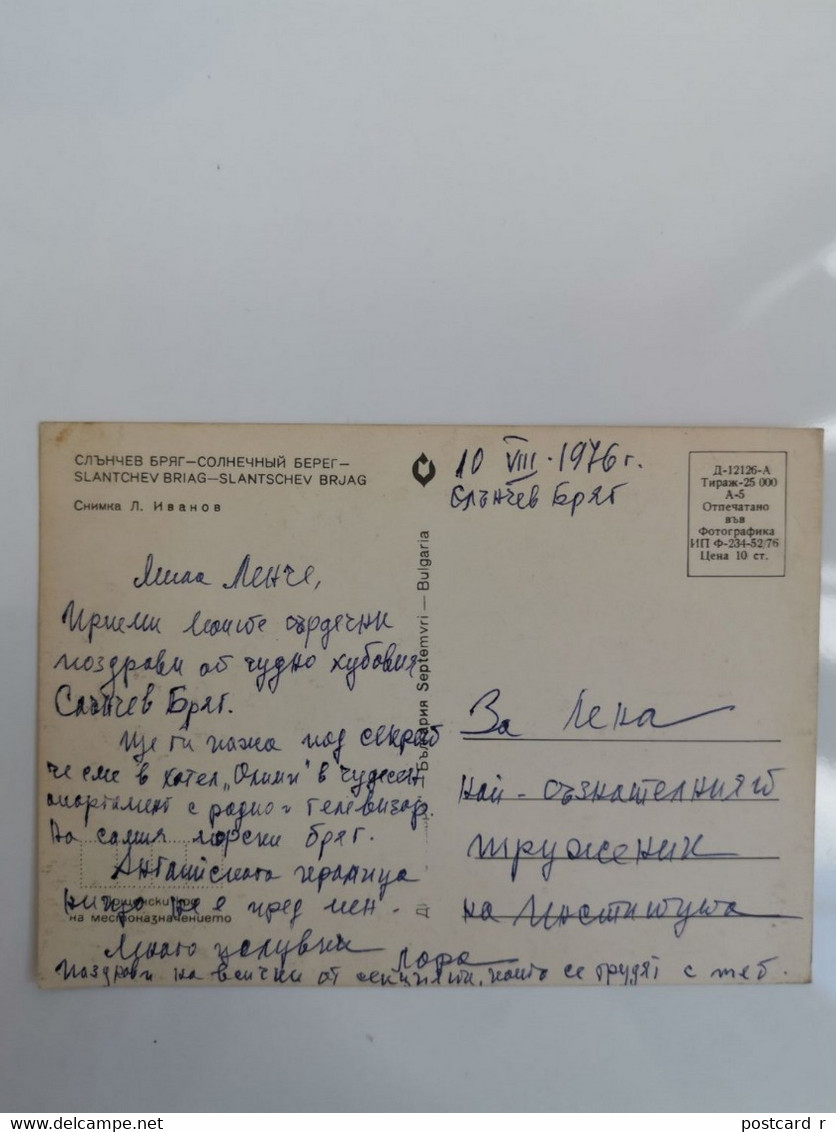 СЛЪНЧЕВ БРЯГ—СОЛНЕЧНЫЙ БЕРЕГ—
SLANTCHEV BRIAG—SLANTSCHEV BRJAG
Снимка Л. Иванов
10 VIII · 1976 г.
Слънчев Бряг
Д-12126-А
Тираж-25 000
А-5
Отпечатано
във
Фотографика
ИП Ф-234-52/76
Цена 10 ст.
България Septemvri — Bulgaria
Мила Ленче,
Приеми моите сърдечни
поздрави от чудно хубавия
Слънчев Бряг.
Ще ти кажа под секрет
че сме в хотел „Олимп" в чудесен
апартамент с радио и телевизор.
На самия морски бряг.
Английската кралица
нищо не е пред мен -
на местоназначението
Много целувки Лора
Поздрави на всички от секцията, които се трудят с теб.
За Лена
най - съзнателният
труженик
на Института
delcampe.net
postcard_r